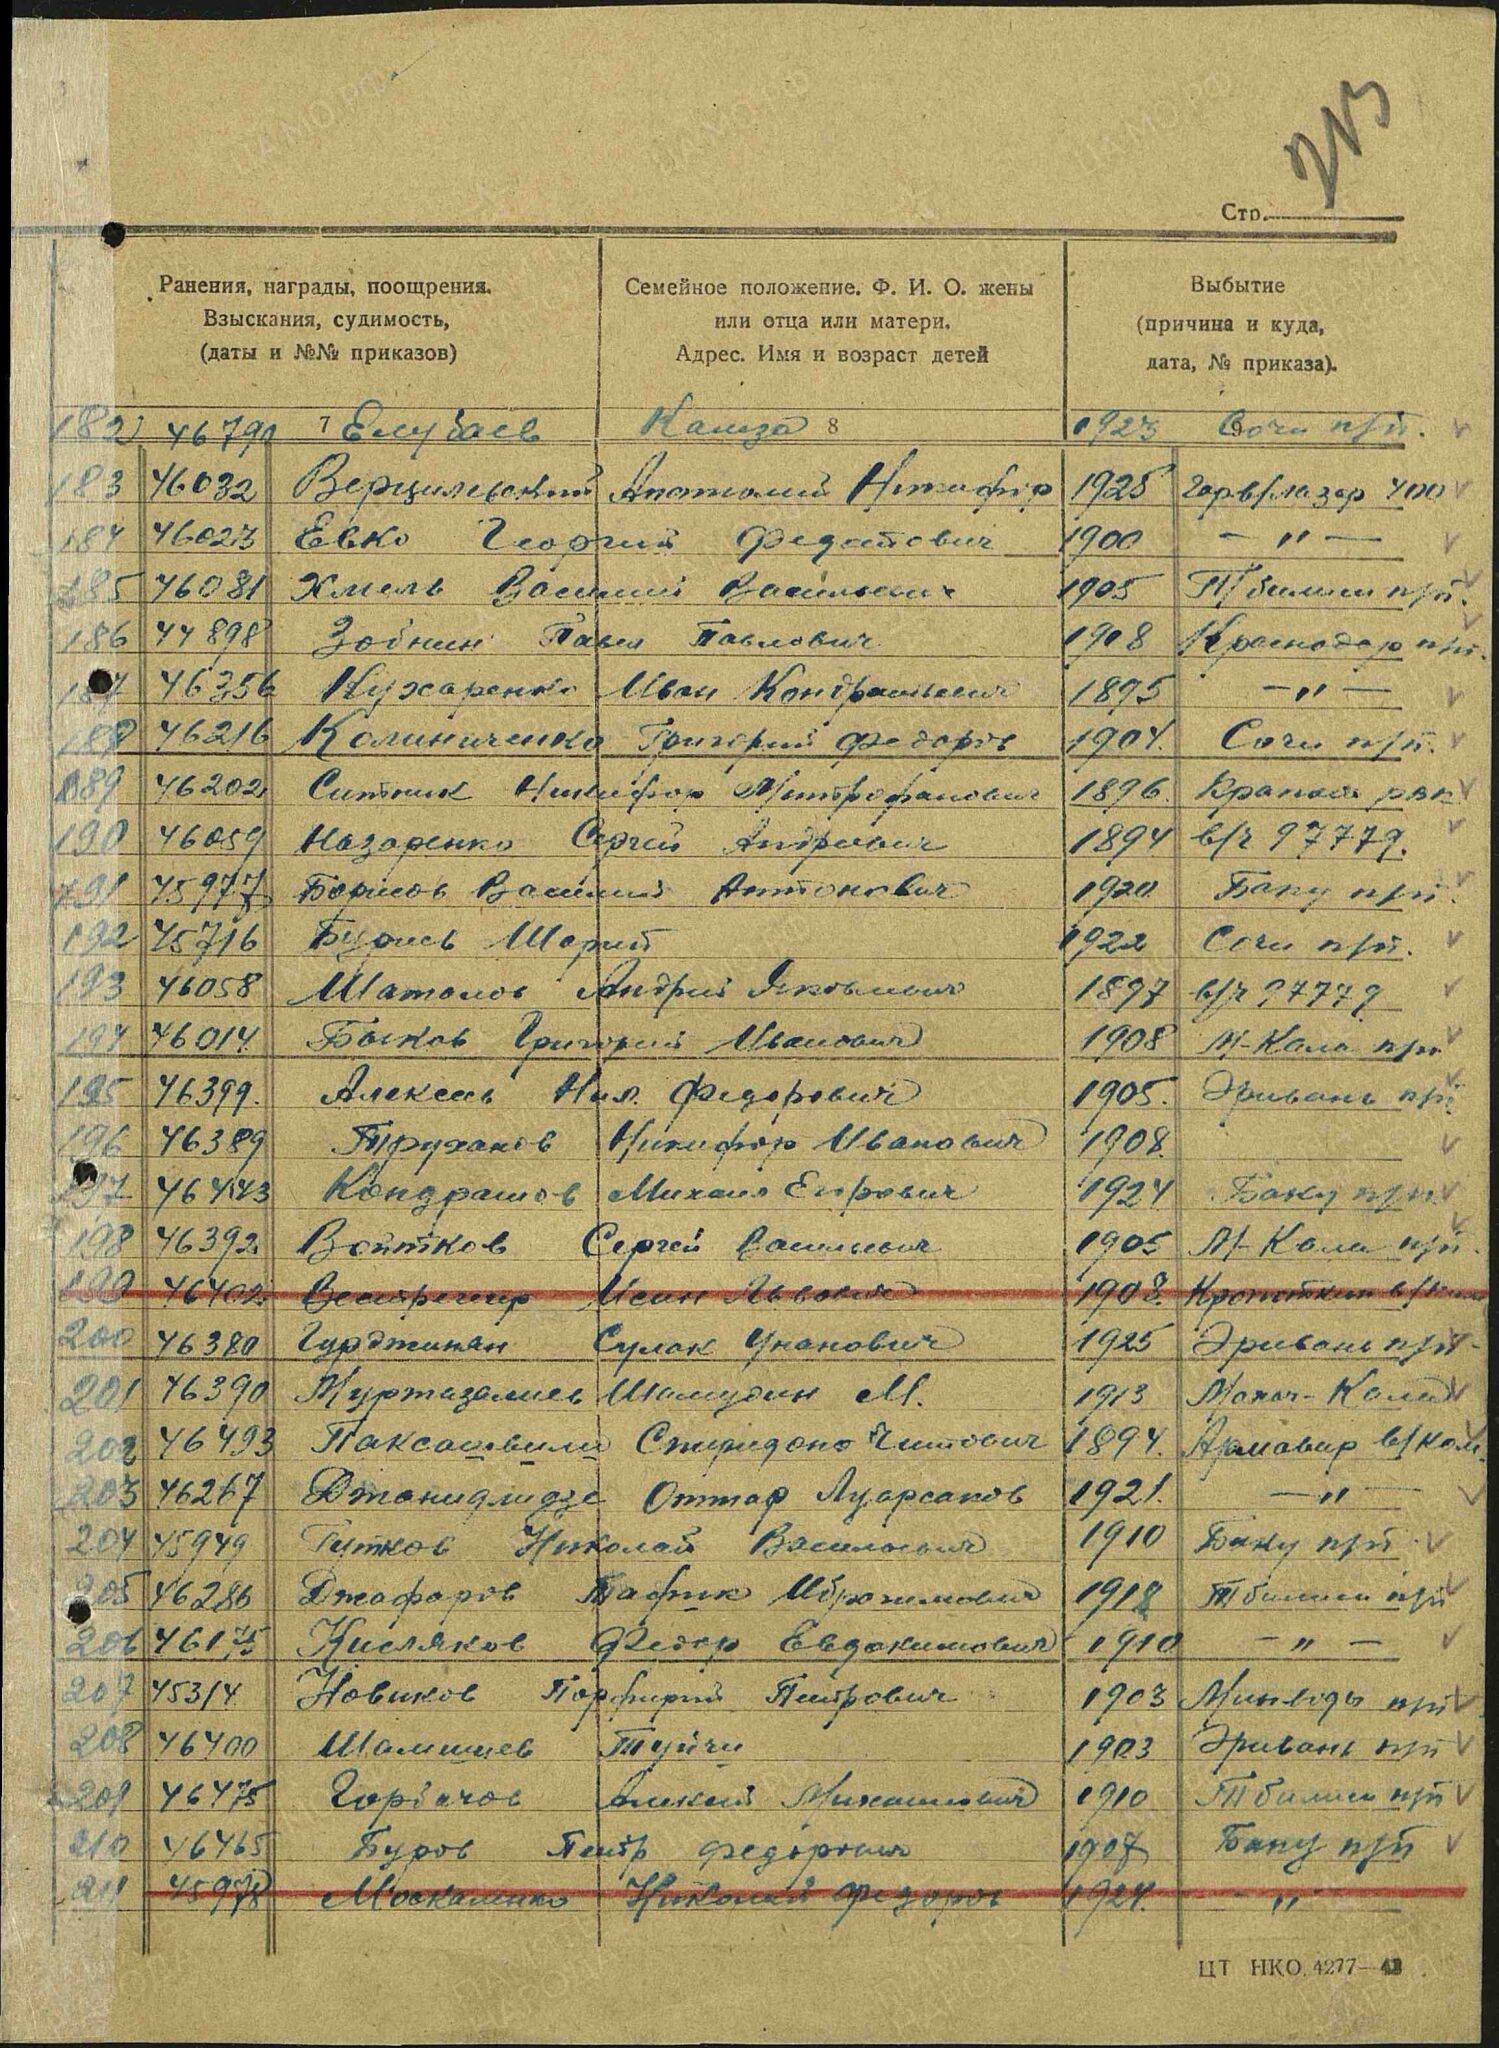 213
Стр.
Ранения, награды, поощрения.
Взыскания, судимость,
(даты и №№ приказов)
Семейное положение. Ф. И. О. жены
или отца или матери.
Адрес. Имя и возраст детей
Выбытие
(причина и куда,
дата, № приказа).
7 8
182 46790 Елубаев Камза 1923 Сочи п/п.
183 46032 Верцилевский Анатолий Никифор 1925
184 46023 Евко Георгий Федотович 1900 — " —
185 46081 Хмель Василий Васильевич 1905 Тбилиси п/п.
186 44898 Зобнин Павел Павлович 1908 Краснодар п/п.
187 46356 Кухаренко Иван Кондратьевич 1895 — " —
188 46216 Калиниченко Григорий Федоров 1904. Сочи п/п.
189 46202 Ситник Никифор Митрофанович 1896 рвк
190 46059 Назаренко Сергей Андреевич 1894 в/ч 97779.
191 45977 Борисов Василий Антонович 1920 Баку п/п.
192 45716 Шарип 1922 Сочи п/п.
193 46058 Шаталов Андрей Яковлевич 1897 в/ч 97779
194 46014 Быков Григорий Иванович 1908 М-Кала п/п
195 46399. Алексеев Ник. Федорович 1905. Эривань п/п
196 46389 Труханов Никифор Иванович 1908.
197 46443 Кондрашов Михаил Егорович 1924 Баку п/п
198 46392 Войтков Сергей Васильевич 1905 М-Кала п/п.
199 46402 Львович 1908. Кропоткин
200 46380 Гурджинян Сулак Унанович 1925 Эривань п/п
201 46390 Муртазалиев Шамудин М. 1913 Махач-Кала
202 46493 Паксашвили Спиридоно 1894. Армавир в/ком.
203 46267 Джанидлидзе Оттар Луарсабов 1921. — " —
204 45949 Титков Николай Васильевич 1910 Баку п/п
205 46286 Джафаров Тафик Ибрагимович 1918 Тбилиси п/п
206 46175 Кисляков Федор Евдокимович 1910 — " —
207 45314 Новиков Порфирий Петрович 1903 Минводы п/п
208 46400 Шамшиев Туйчи 1903 Эривань п/п
209 46475 Горбачов Михайлович 1910 Тбилиси п/п
210 46465 Буров Петр Федорович 1907 Баку п/п
211 45978 Москаленко Николай Федоров 1924. — " —
ЦТ НКО. 4277—43